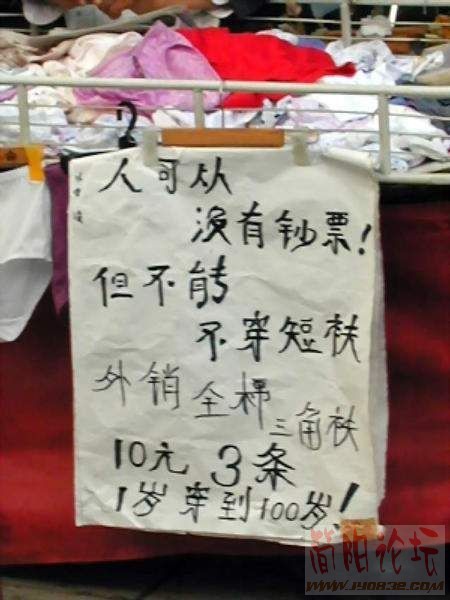 人可从
没有钞票!
但不能
不穿短衭
外销全棉
三角衭
10元 3条
1岁穿到100岁!
简阳论坛
WWW.JY0832.COM